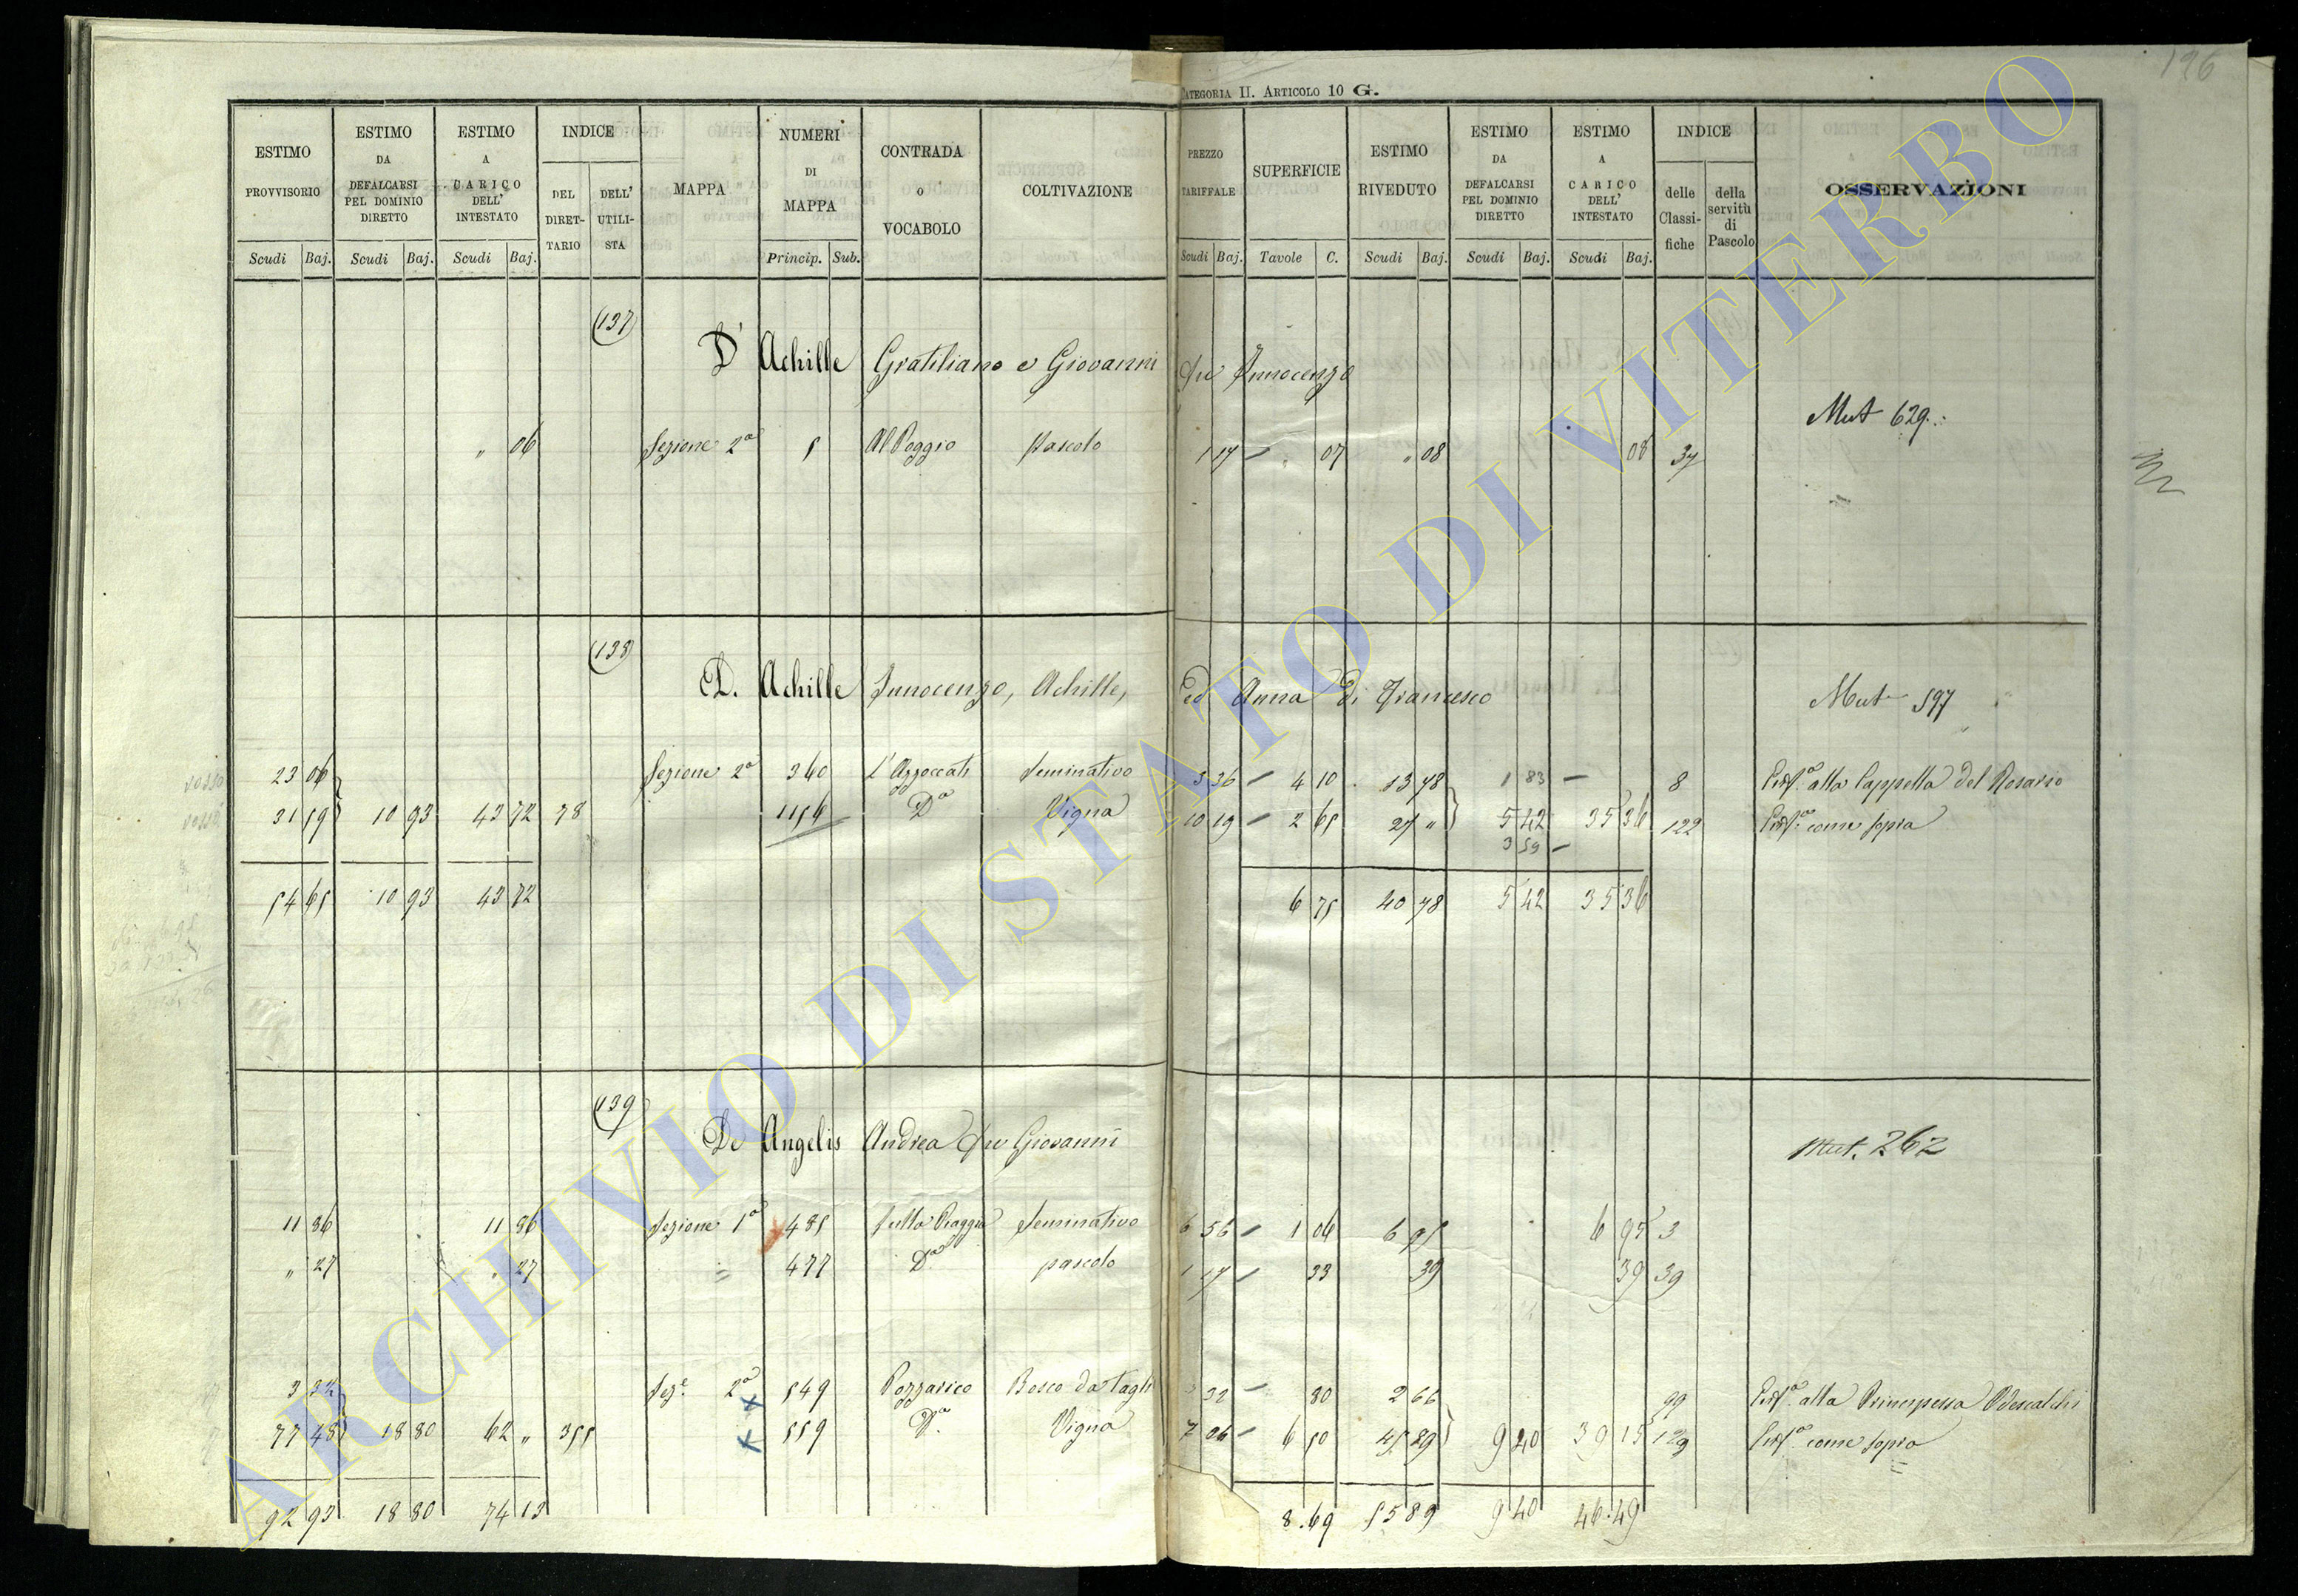 196
CATEGORIA II. ARTICOLO 10 G.
ESTIMO PROVVISORIO Scudi Baj.
ESTIMO DA DEFALCARSI PEL DOMINIO DIRETTO Scudi Baj.
ESTIMO A CARICO DELL' INTESTATO Scudi Baj.
INDICE DEL DIRETTARIO DELL' UTILISTA
MAPPA
NUMERI DI MAPPA Princip. Sub.
CONTRADA o VOCABOLO
COLTIVAZIONE
PREZZO TARIFFALE Scudi Baj.
SUPERFICIE Tavole C.
ESTIMO RIVEDUTO Scudi Baj.
ESTIMO DA DEFALCARSI PEL DOMINIO DIRETTO Scudi Baj.
ESTIMO A CARICO DELL' INTESTATO Scudi Baj.
INDICE delle Classifiche della servitù di Pascolo
OSSERVAZIONI
(137)
D' Achille Gratiliano e Giovanni fu Innocenzo
Mut 629.
" 06 Sezione 2ª 5 Al Poggio pascolo 1 17 " 07 " 08 08 37
(138)
D. Achille Innocenzo, Achille, ed Anna di Francesco Mut 597
23 06 Sezione 2ª 360 L'Azzoccati Seminativo 3 36 4 10 13 78 1 83 8 Rispª alla Cappella del Rosario
31 59 10 93 43 72 78 1156 Dª Vigna 10 19 2 65 27 " 5 42 35 36 122 Rispª come sopra
3 59
54 65 10 93 43 72 6 75 40 78 5 42 35 36
(139)
De Angelis Andrea fu Giovanni Mut. 262
11 86 11 86 Sezione 1ª 485 Seminativo 6 56 1 06 6 95 6 95 3
" 27 " 27 = 477 Dª pascolo 1 17 33 39 39 39
Sezᵉ 2ª 549 Pozzarico Bosco da Tagli 32 80 2 66 99 Rispª alla Principessa Odescalchi
77 48 18 80 62 " 355 559 Dª Vigna 7 06 6 50 45 89 9 40 39 15 129 Rispª come sopra
92 93 18 80 74 13 8.69 55 89 9 40 46.49
ARCHIVIO DI STATO DI VITERBO